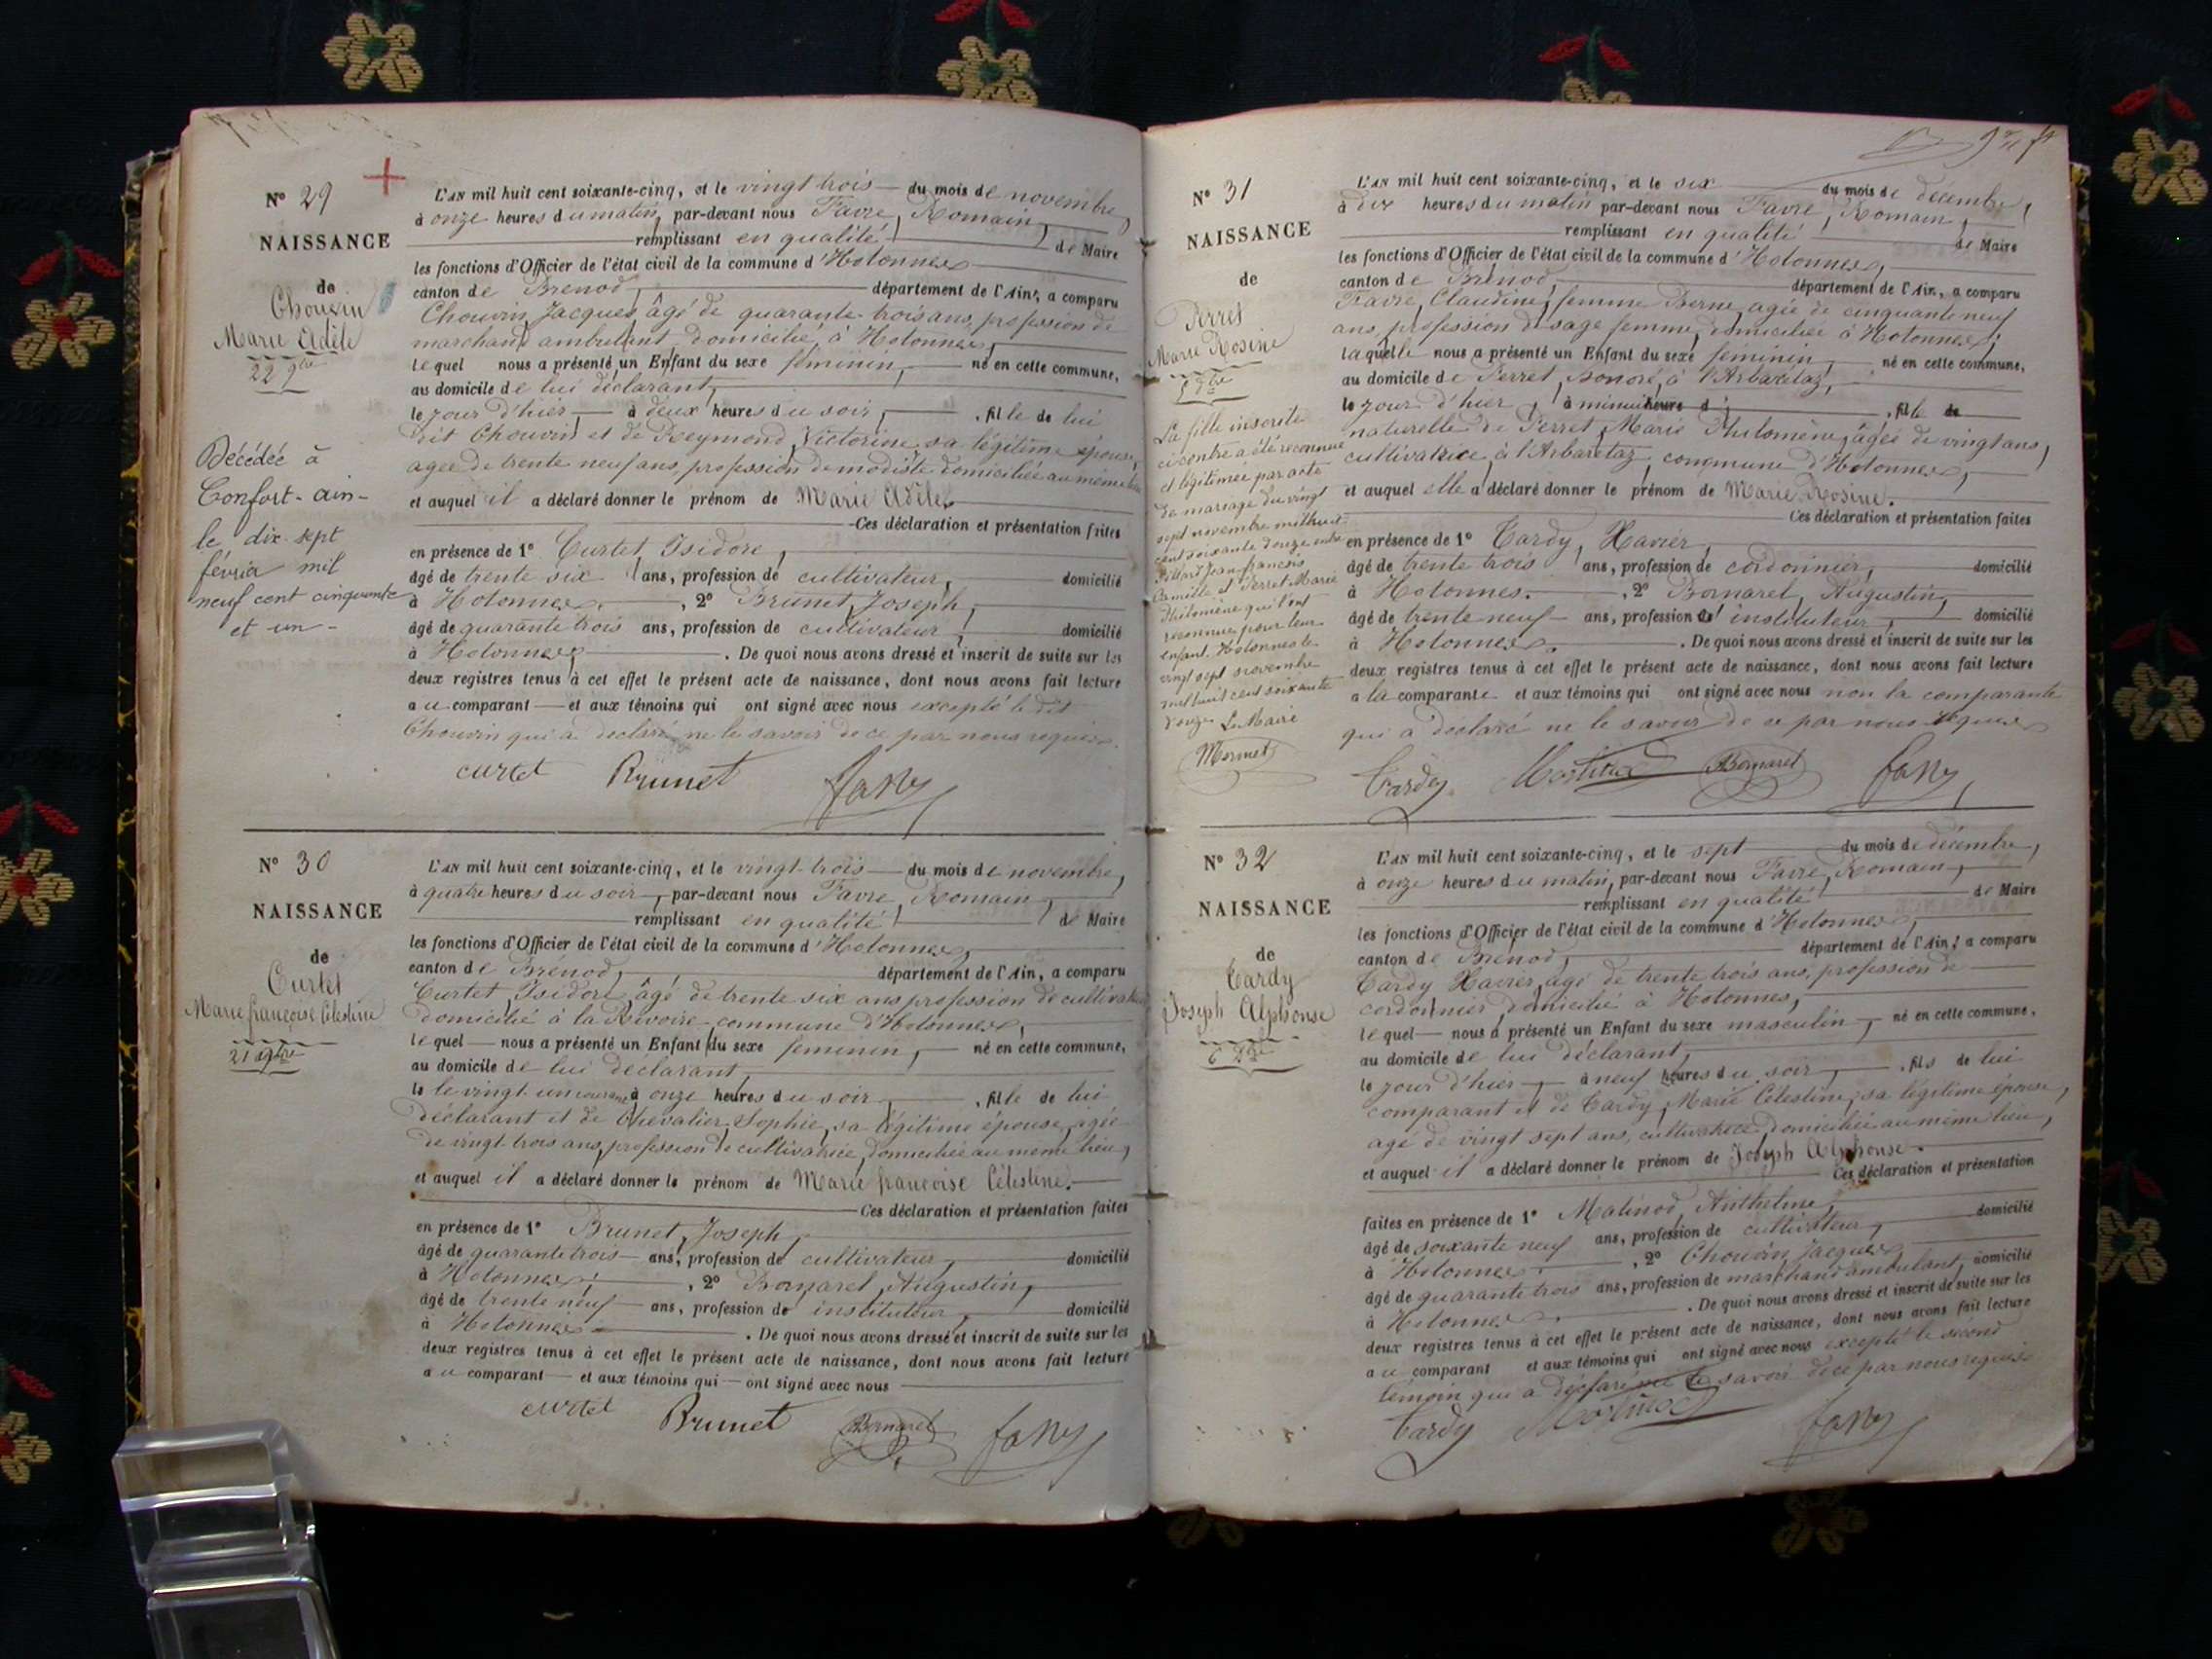 N° 29
NAISSANCE
de
Chouvin
Marie Adèle
22 9bre
Décédée à
Confort-ain-
le dix-sept
février mil
neuf cent cinquante
et un -
L'AN mil huit cent soixante-cinq, et le vingt trois du mois de novembre,
à onze heures du matin, par-devant nous Favre, Romain,
remplissant en qualité de Maire
les fonctions d'Officier de l'état civil de la commune d'Hotonnes
canton de Brénod, département de l'Ain, a comparu
Chouvin Jacques, âgé de quarante-trois ans, profession de
marchand ambulant, domicilié à Hotonnes,
lequel nous a présenté un Enfant du sexe féminin, né en cette commune,
au domicile de lui déclarant,
le jour d'hier à deux heures du soir, fille de lui
dit Chouvin et de Reymond, Victorine, sa légitime épouse,
agée de trente neuf ans, profession de modiste domiciliée au même lieu
et auquel il a déclaré donner le prénom de Marie Adèle.
Ces déclaration et présentation faites
en présence de 1° Curtet, Isidore,
âgé de trente six ans, profession de cultivateur, domicilié
à Hotonnes, 2° Brunet, Joseph,
âgé de quarante trois ans, profession de cultivateur, domicilié
à Hotonnes, . De quoi nous avons dressé et inscrit de suite sur les
deux registres tenus à cet effet le présent acte de naissance, dont nous avons fait lecture
au comparant et aux témoins qui ont signé avec nous excepté le dit
Chouvin qui a déclaré ne le savoir de ce par nous requis.
curtet Brunet favre
N° 30
NAISSANCE
de
Curtet
Marie françoise Célestine
21 9bre
L'AN mil huit cent soixante-cinq, et le vingt-trois du mois de novembre,
à quatre heures du soir, par-devant nous Favre, Romain,
remplissant en qualité de Maire
les fonctions d'Officier de l'état civil de la commune d'Hotonnes,
canton de Brénod, département de l'Ain, a comparu
Curtet Isidore, âgé de trente six ans profession de cultivateur
domicilié à la Rivoire, commune d'Hotonnes,
lequel nous a présenté un Enfant du sexe féminin, né en cette commune,
au domicile de lui déclarant,
le le vingt-un courant à onze heures du soir, fille de lui
déclarant et de Chevalier, Sophie, sa légitime épouse, agée
de vingt trois ans, profession de cultivatrice, domiciliée au même lieu,
et auquel il a déclaré donner le prénom de Marie françoise Célestine.
Ces déclaration et présentation faites
en présence de 1° Brunet, Joseph,
âgé de quarante trois ans, profession de cultivateur, domicilié
à Hotonnes, 2° Bornarel, Augustin,
âgé de trente neuf ans, profession de instituteur, domicilié
à Hotonnes . De quoi nous avons dressé et inscrit de suite sur les
deux registres tenus à cet effet le présent acte de naissance, dont nous avons fait lecture
au comparant et aux témoins qui ont signé avec nous
curtet Brunet Bornarel favre
N° 31
NAISSANCE
de
Perret
Marie Rosine
5 Xbre
La fille inscrite
ci contre a été reconnue
et légitimée par acte
de mariage du vingt
sept novembre mil huit
cent soixante douze entre
Jean-francois
Camille et Perret Marie
Philomène qui l'ont
reconnue pour leur
enfant. Hotonnes le
vingt sept novembre
mil huit cent soixante
douze Le Maire
Mermet
L'AN mil huit cent soixante-cinq, et le six du mois de décembre,
à dix heures du matin par-devant nous Favre, Romain,
remplissant en qualité de Maire
les fonctions d'Officier de l'état civil de la commune d'Hotonnes,
canton de Brénod, département de l'Ain, a comparu
Favre, Claudine, femme Berne, agée de cinquante neuf
ans, profession de sage femme, domiciliée à Hotonnes;
laquelle nous a présenté un Enfant du sexe féminin, né en cette commune,
au domicile de Perret, Honoré, à l'Arbarétaz,
le jour d'hier, à minuit heure d , fille de
naturelle de Perret, Marie Philomène, âgée de vingt ans,
cultivatrice à l'Arbarétaz, commune d'Hotonnes,
et auquel elle a déclaré donner le prénom de Marie Rosine.
Ces déclaration et présentation faites
en présence de 1° Tardy, Xavier,
âgé de trente trois ans, profession de cordonnier, domicilié
à Hotonnes. , 2° Bornarel, Augustin,
âgé de trente neuf ans, profession d'instituteur, domicilié
à Hotonnes. . De quoi nous avons dressé et inscrit de suite sur les
deux registres tenus à cet effet le présent acte de naissance, dont nous avons fait lecture
a la comparante et aux témoins qui ont signé avec nous non la comparante
qui a déclaré ne le savoir de ce par nous requise
Tardy Bornarel favre
N° 32
NAISSANCE
de
Tardy
Joseph Alphonse
6 Xbre
L'AN mil huit cent soixante-cinq, et le sept du mois de décembre,
à onze heures du matin, par-devant nous Favre, Romain,
remplissant en qualité de Maire
les fonctions d'Officier de l'état civil de la commune d'Hotonnes,
canton de Brénod, département de l'Ain, a comparu
Tardy Xavier, âgé de trente trois ans, profession de
cordonnier domicilié à Hotonnes,
lequel nous a présenté un Enfant du sexe masculin, né en cette commune,
au domicile de lui déclarant,
le jour d'hier, à neuf heures du soir, fils de lui
comparant et de Tardy, Marie Célestine, sa légitime épouse,
agé de vingt sept ans, cultivatrice, domiciliée au même lieu,
et auquel il a déclaré donner le prénom de Joseph Alphonse.
Ces déclaration et présentation
faites en présence de 1° Malinod, Anthelme,
âgé de soixante neuf ans, profession de cultivateur, domicilié
à Hotonnes, 2° Chouvin, Jacques,
âgé de quarante trois ans, profession de marchand ambulant, domicilié
à Hotonnes . De quoi nous avons dressé et inscrit de suite sur les
deux registres tenus à cet effet le présent acte de naissance, dont nous avons fait lecture
au comparant et aux témoins qui ont signé avec nous excepté le second
témoin qui a déclaré ne le savoir de ce par nous requis
Tardy favre